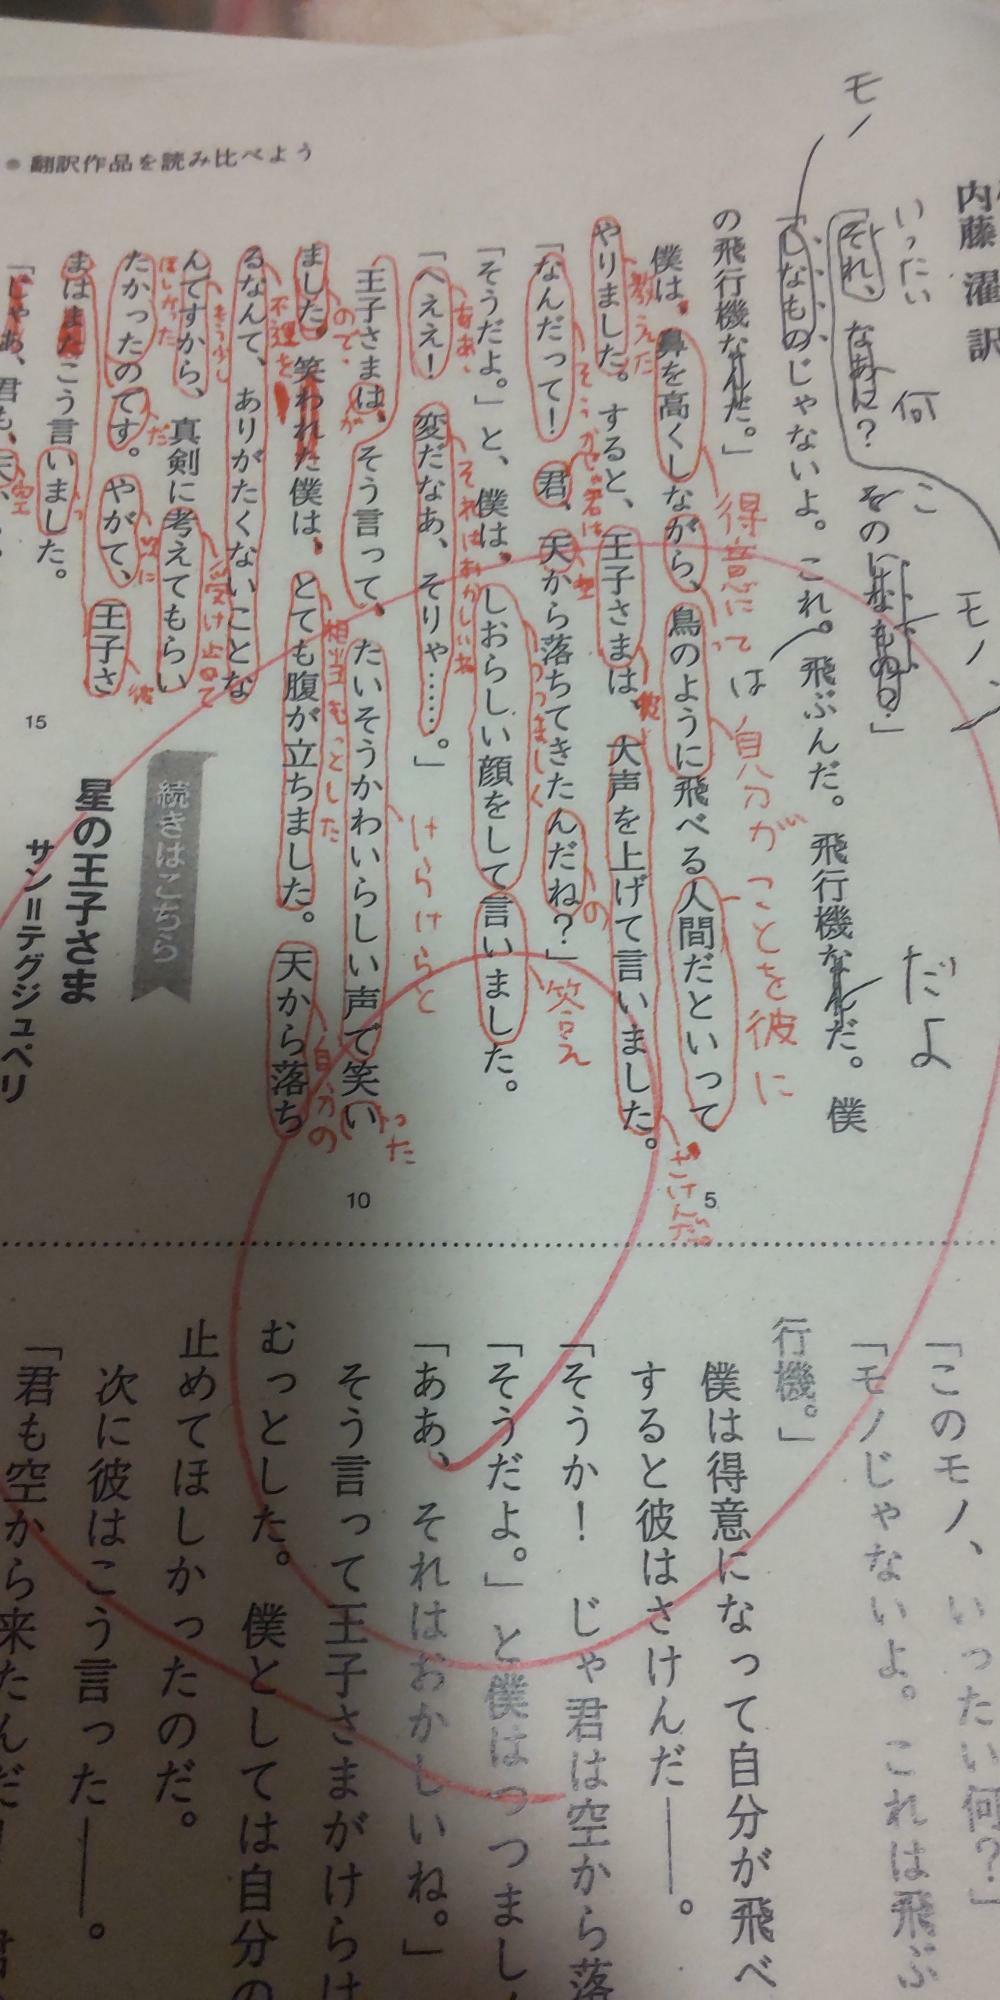 翻訳作品を読み比べよう
内藤 濯 訳
「それ、なあに? そのしなもの?」
いったい
何
こ
モノ
「しなもののじゃないよ。これ。飛ぶんだ。飛行機なんだ。僕
モノ
は
だよ
の飛行機なんだ。」
得意に
って
自分が
ことを彼に
僕は、鼻を高くしながら、鳥のように飛べる人間だといって
やりました。すると、王子さまは、大声を上げて言いました。
教えた
彼
さけんだ。
5
「なんだって! 君、天から落ちてきたんだね?」
そうか
じゃ君は
空
の
「そうだよ。」と、僕は、しおらしい顔をして言いました。
つつましく
答え
「へええ! 変だなあ、そりゃ……。」
ああ、
それはおかしいね
王子さまは、そう言って、たいそうかわいらしい声で笑い
が
けらけらと
った
10
ました。笑われた僕は、とても腹が立ちました。天から落ち
ので、
相当むっとした
自分の
るなんて、ありがたくないことな
不運を
んですから、真剣に考えてもらい
もう少し
受け止めて
たかったのです。やがて、王子さ
ほしかった
だ
次に
彼
まはまたこう言いました。
っ
「じゃあ、君も、天
空
15
続きはこちら
星の王子さま
サン=テグジュペリ
「このモノ、いったい何?」
「モノじゃないよ。これは飛ぶ
行機。」
僕は得意になって自分が飛べ
すると彼はさけんだ――。
「そうか! じゃ君は空から落
「そうだよ。」と僕はつつまし
「ああ、それはおかしいね。」
そう言って王子さまがけらけ
むっとした。僕としては自分の
止めてほしかったのだ。
次に彼はこう言った――。
「君も空から来たんだ